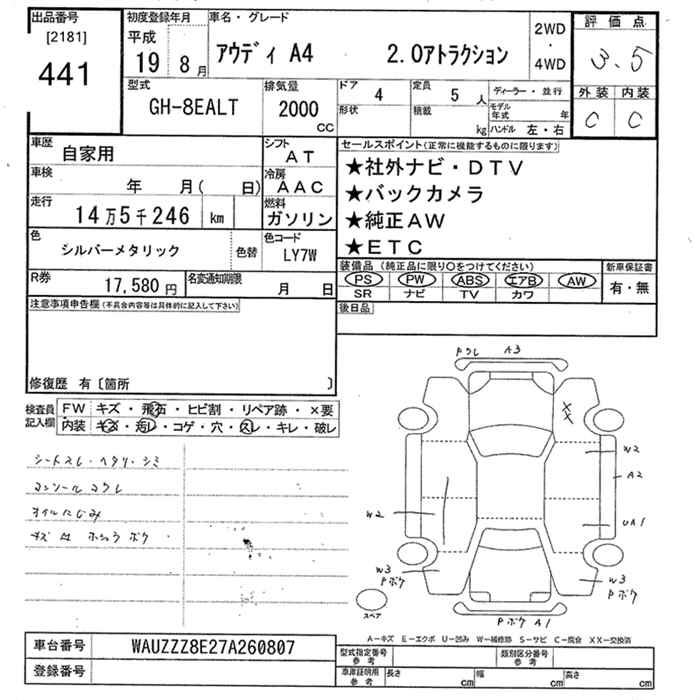 出品番号 初度登録年月 車名・グレード 2WD ・ 4WD 評価点
[2181] 441 平成 19 8月 アウディ A4 2.0アトラクション 3.5
型式 排気量 ドア 4 定員 5人 ディーラー・並行 外装 内装
GH-8EALT 2000 cc 形状 積載 kg モデル年式 年 C C
ハンドル 左・右
車歴 自家用 シフト AT セールスポイント(正常に機能するものに限ります)
車検 年 月( 日) 冷房 AAC ★社外ナビ・DTV
走行 14万5千246 km 燃料 ガソリン ★バックカメラ
★純正AW
色 シルバーメタリック 色替 色コード LY7W ★ETC
R券 17,580円 名変通知期限 月 日 装備品(純正品に限り○をつけてください) 新車保証書
PS PW ABS エアB AW 有・無
SR ナビ TV カワ
注意事項申告欄(不具合内容等は具体的に記入して下さい) 後日品
修復歴 有〔箇所 〕
検査員記入欄 FW キズ・飛石・ヒビ割・リペア跡・×要
内装 キズ・汚レ・コゲ・穴・スレ・キレ・破レ
シートスレ・ヘタリ・シミ
コンソールコワレ
オイルにじみ
Pワレ A3
XX
W2
A2
W2
UA1
W3
Pボケ
W3
Pボケ
スペア
Pボケ A1
A-キズ E-エクボ U-凹み W-補修跡 S-サビ C-腐食 XX-交換済
車台番号 WAUZZZ8E27A260807 型式指定番号 参考 類別区分番号 参考
登録番号 車庫証明用 参考 長さ cm 幅 cm 高さ cm